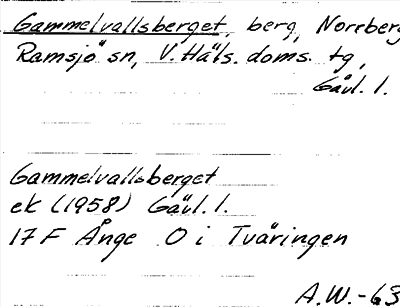 Gammelvallsberget, berg, Norrberg
Ramsjö sn, V. Häls. doms. tg,
Gävl. l.
Gammelvallsberget
ek (1958) Gävl. l.
17 F Ånge O i Tvåringen
A.W. -63